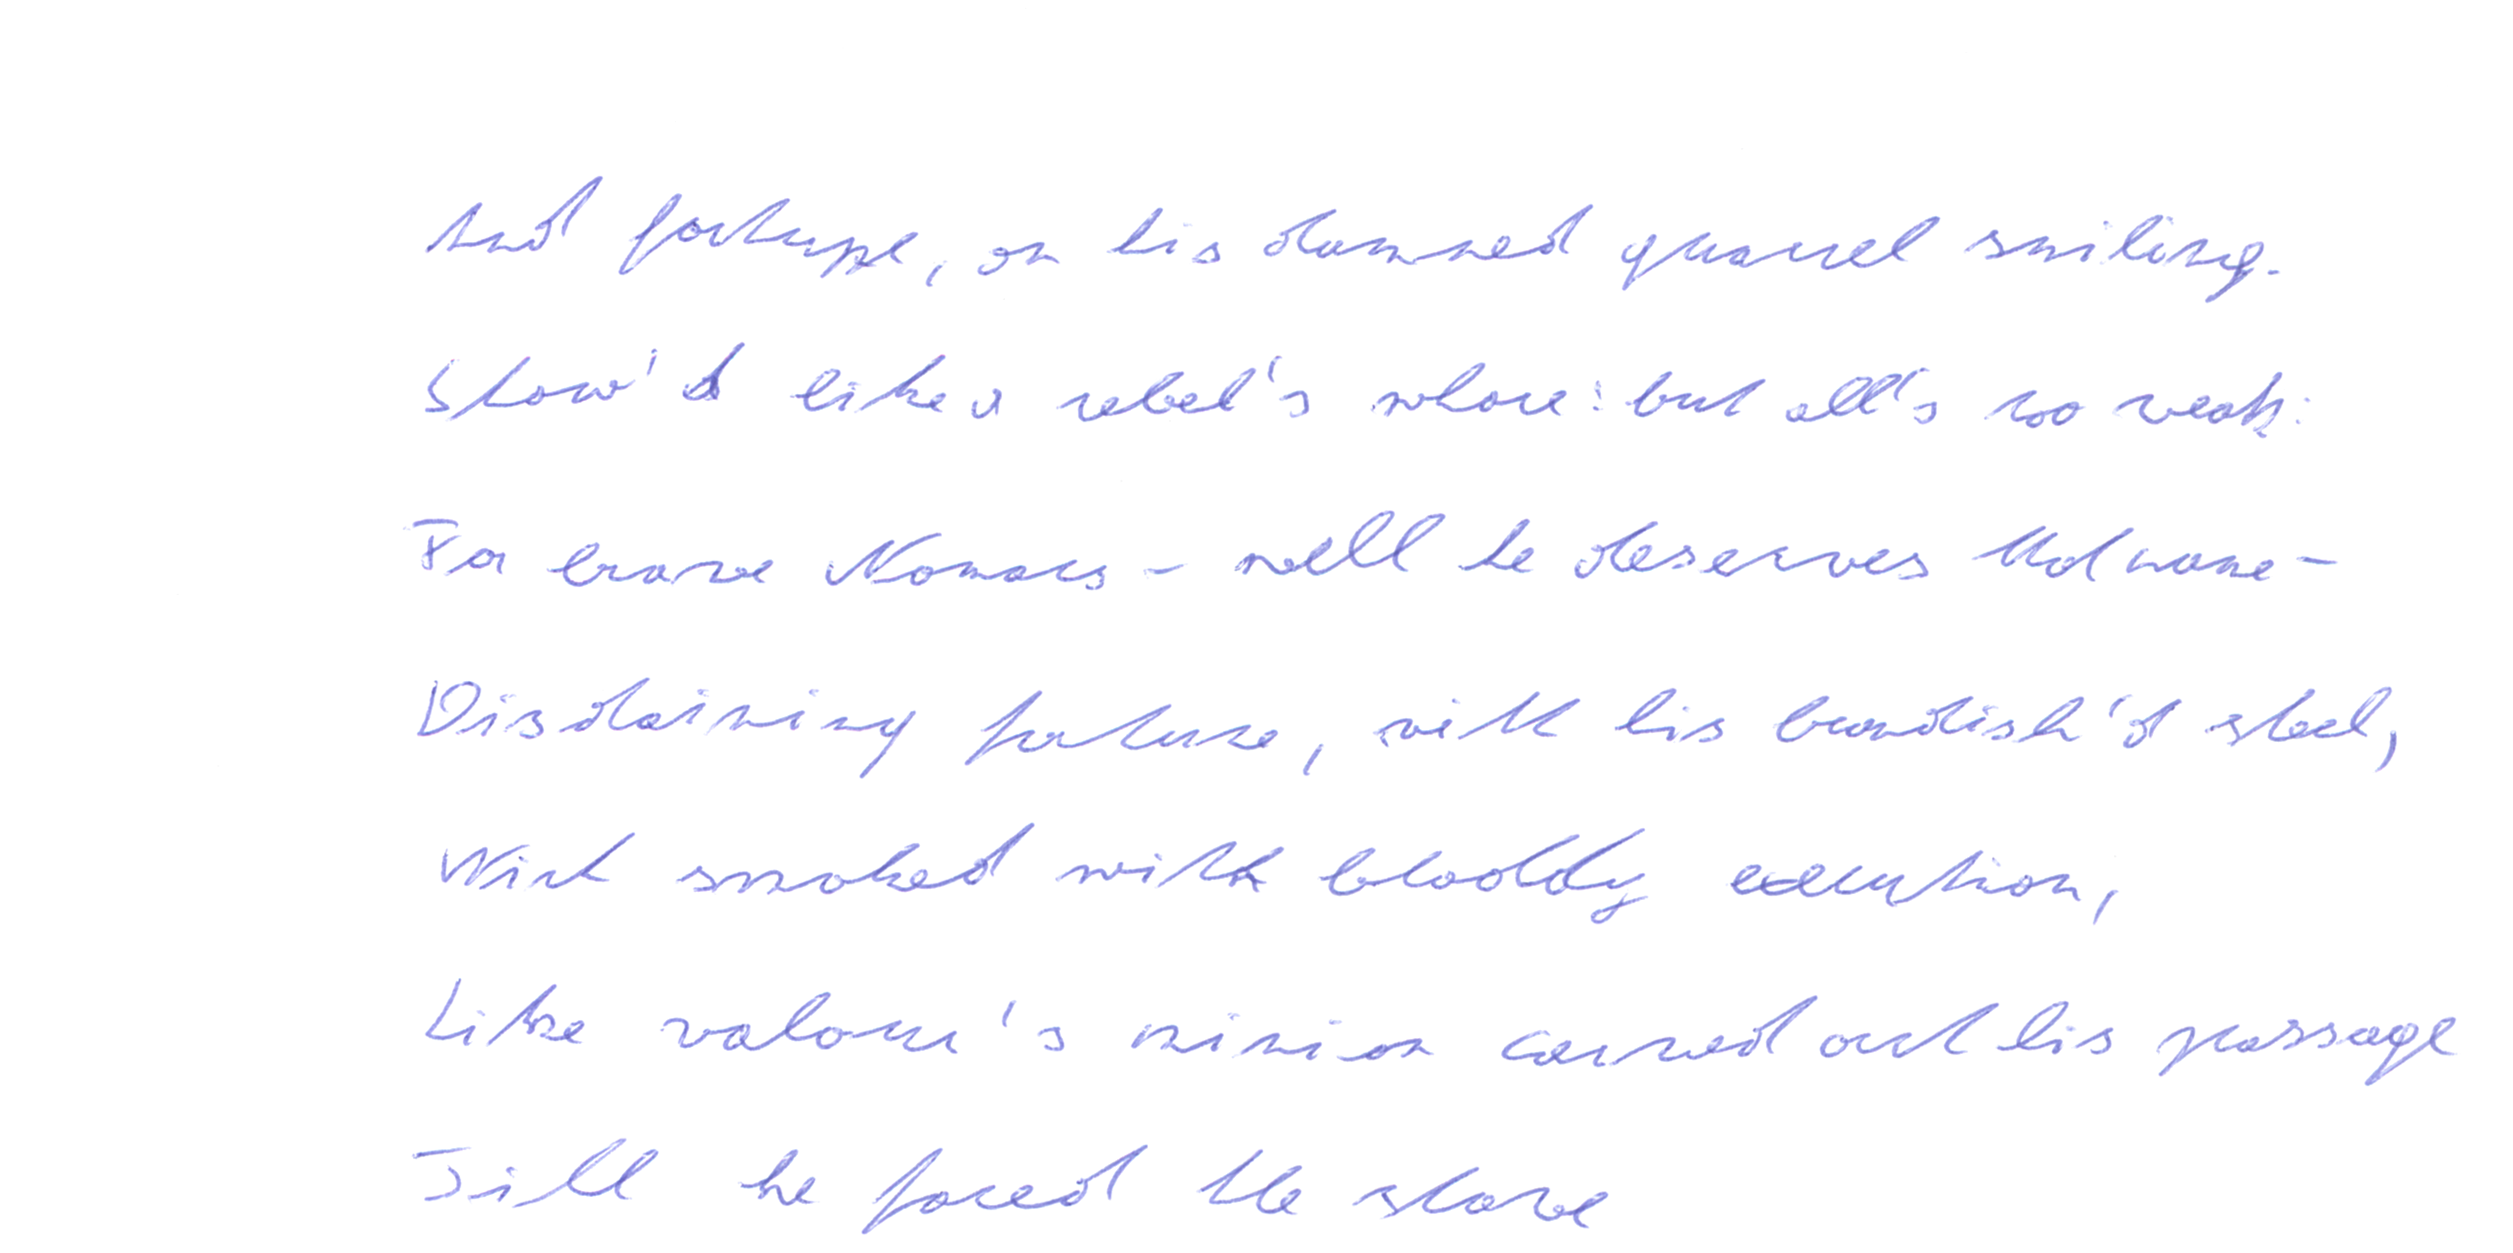 And fortune, on his damned quarrel smiling.
Show'd like a rebel's whore: but all's too weak:
For brave Macbeth - well he deserves that name-
Disdaining fortune, with his brandish'd steel,
Which smoked with bloody execution,
Like valour's minion carved out his passage
Till he faced the slave